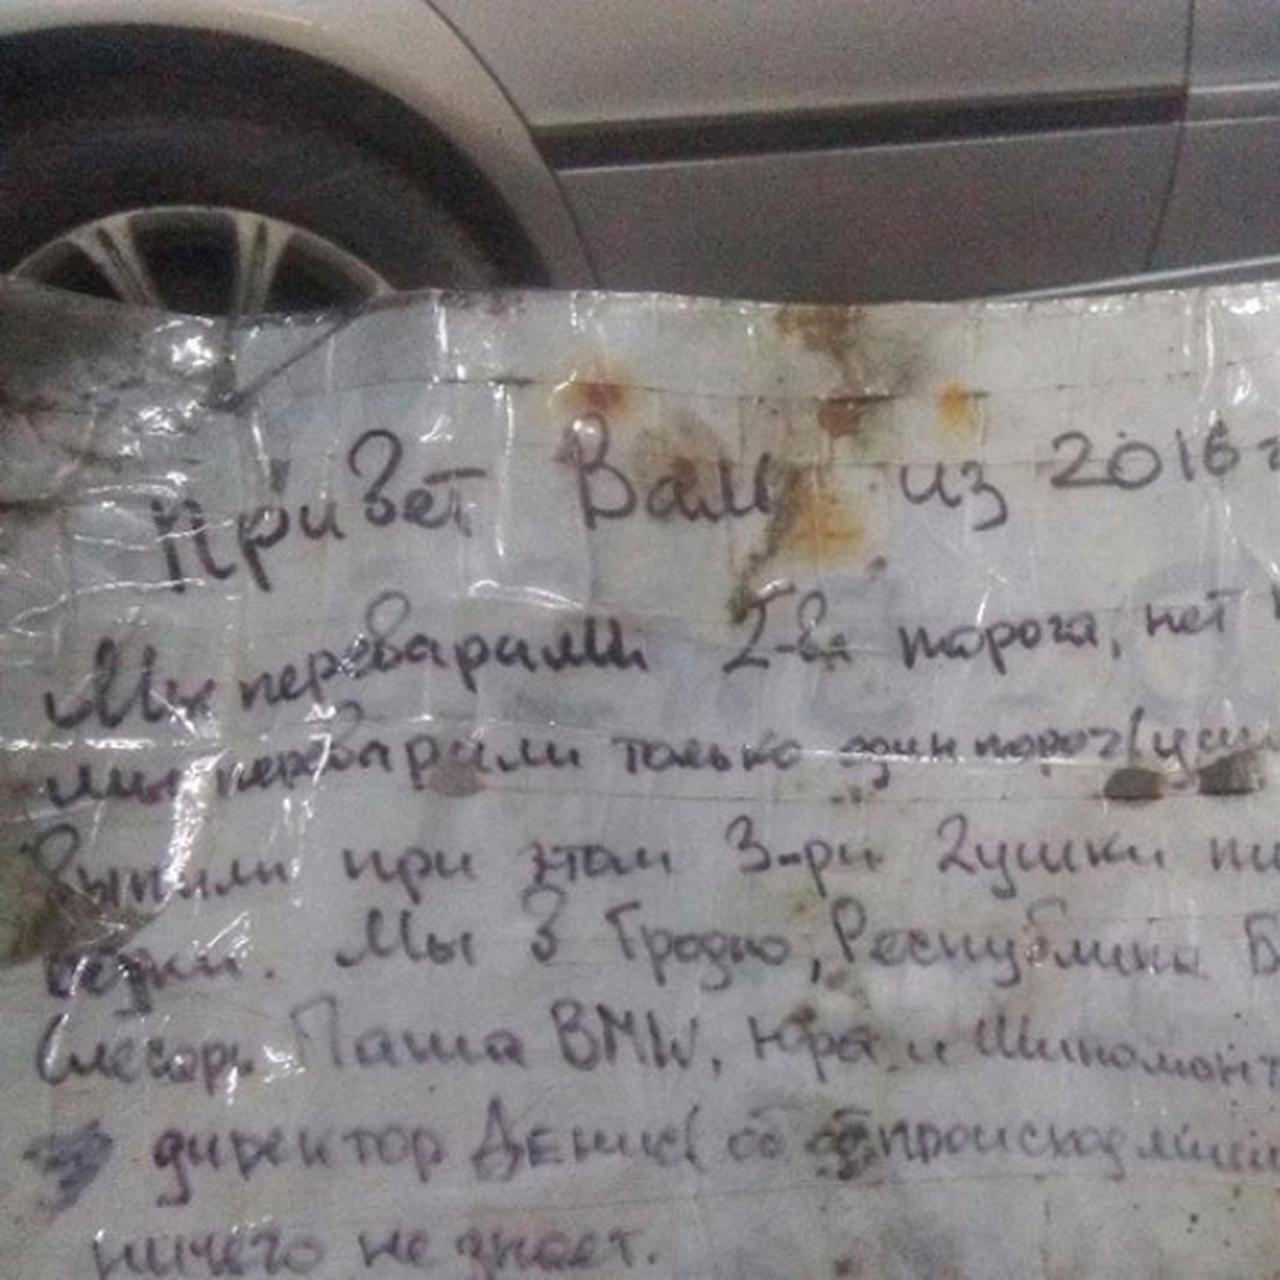 Привет Вам из 2016 г
Мы переварили 2-ва порога, нет
мы переварили только один порог
Выпили при этом 3-ри 2ушки
водки. Мы в Гродно, Республика Б
Слесарь Паша BMW, Юра и Шиномонт
директор Денис( об происходящим
ничего не знает.